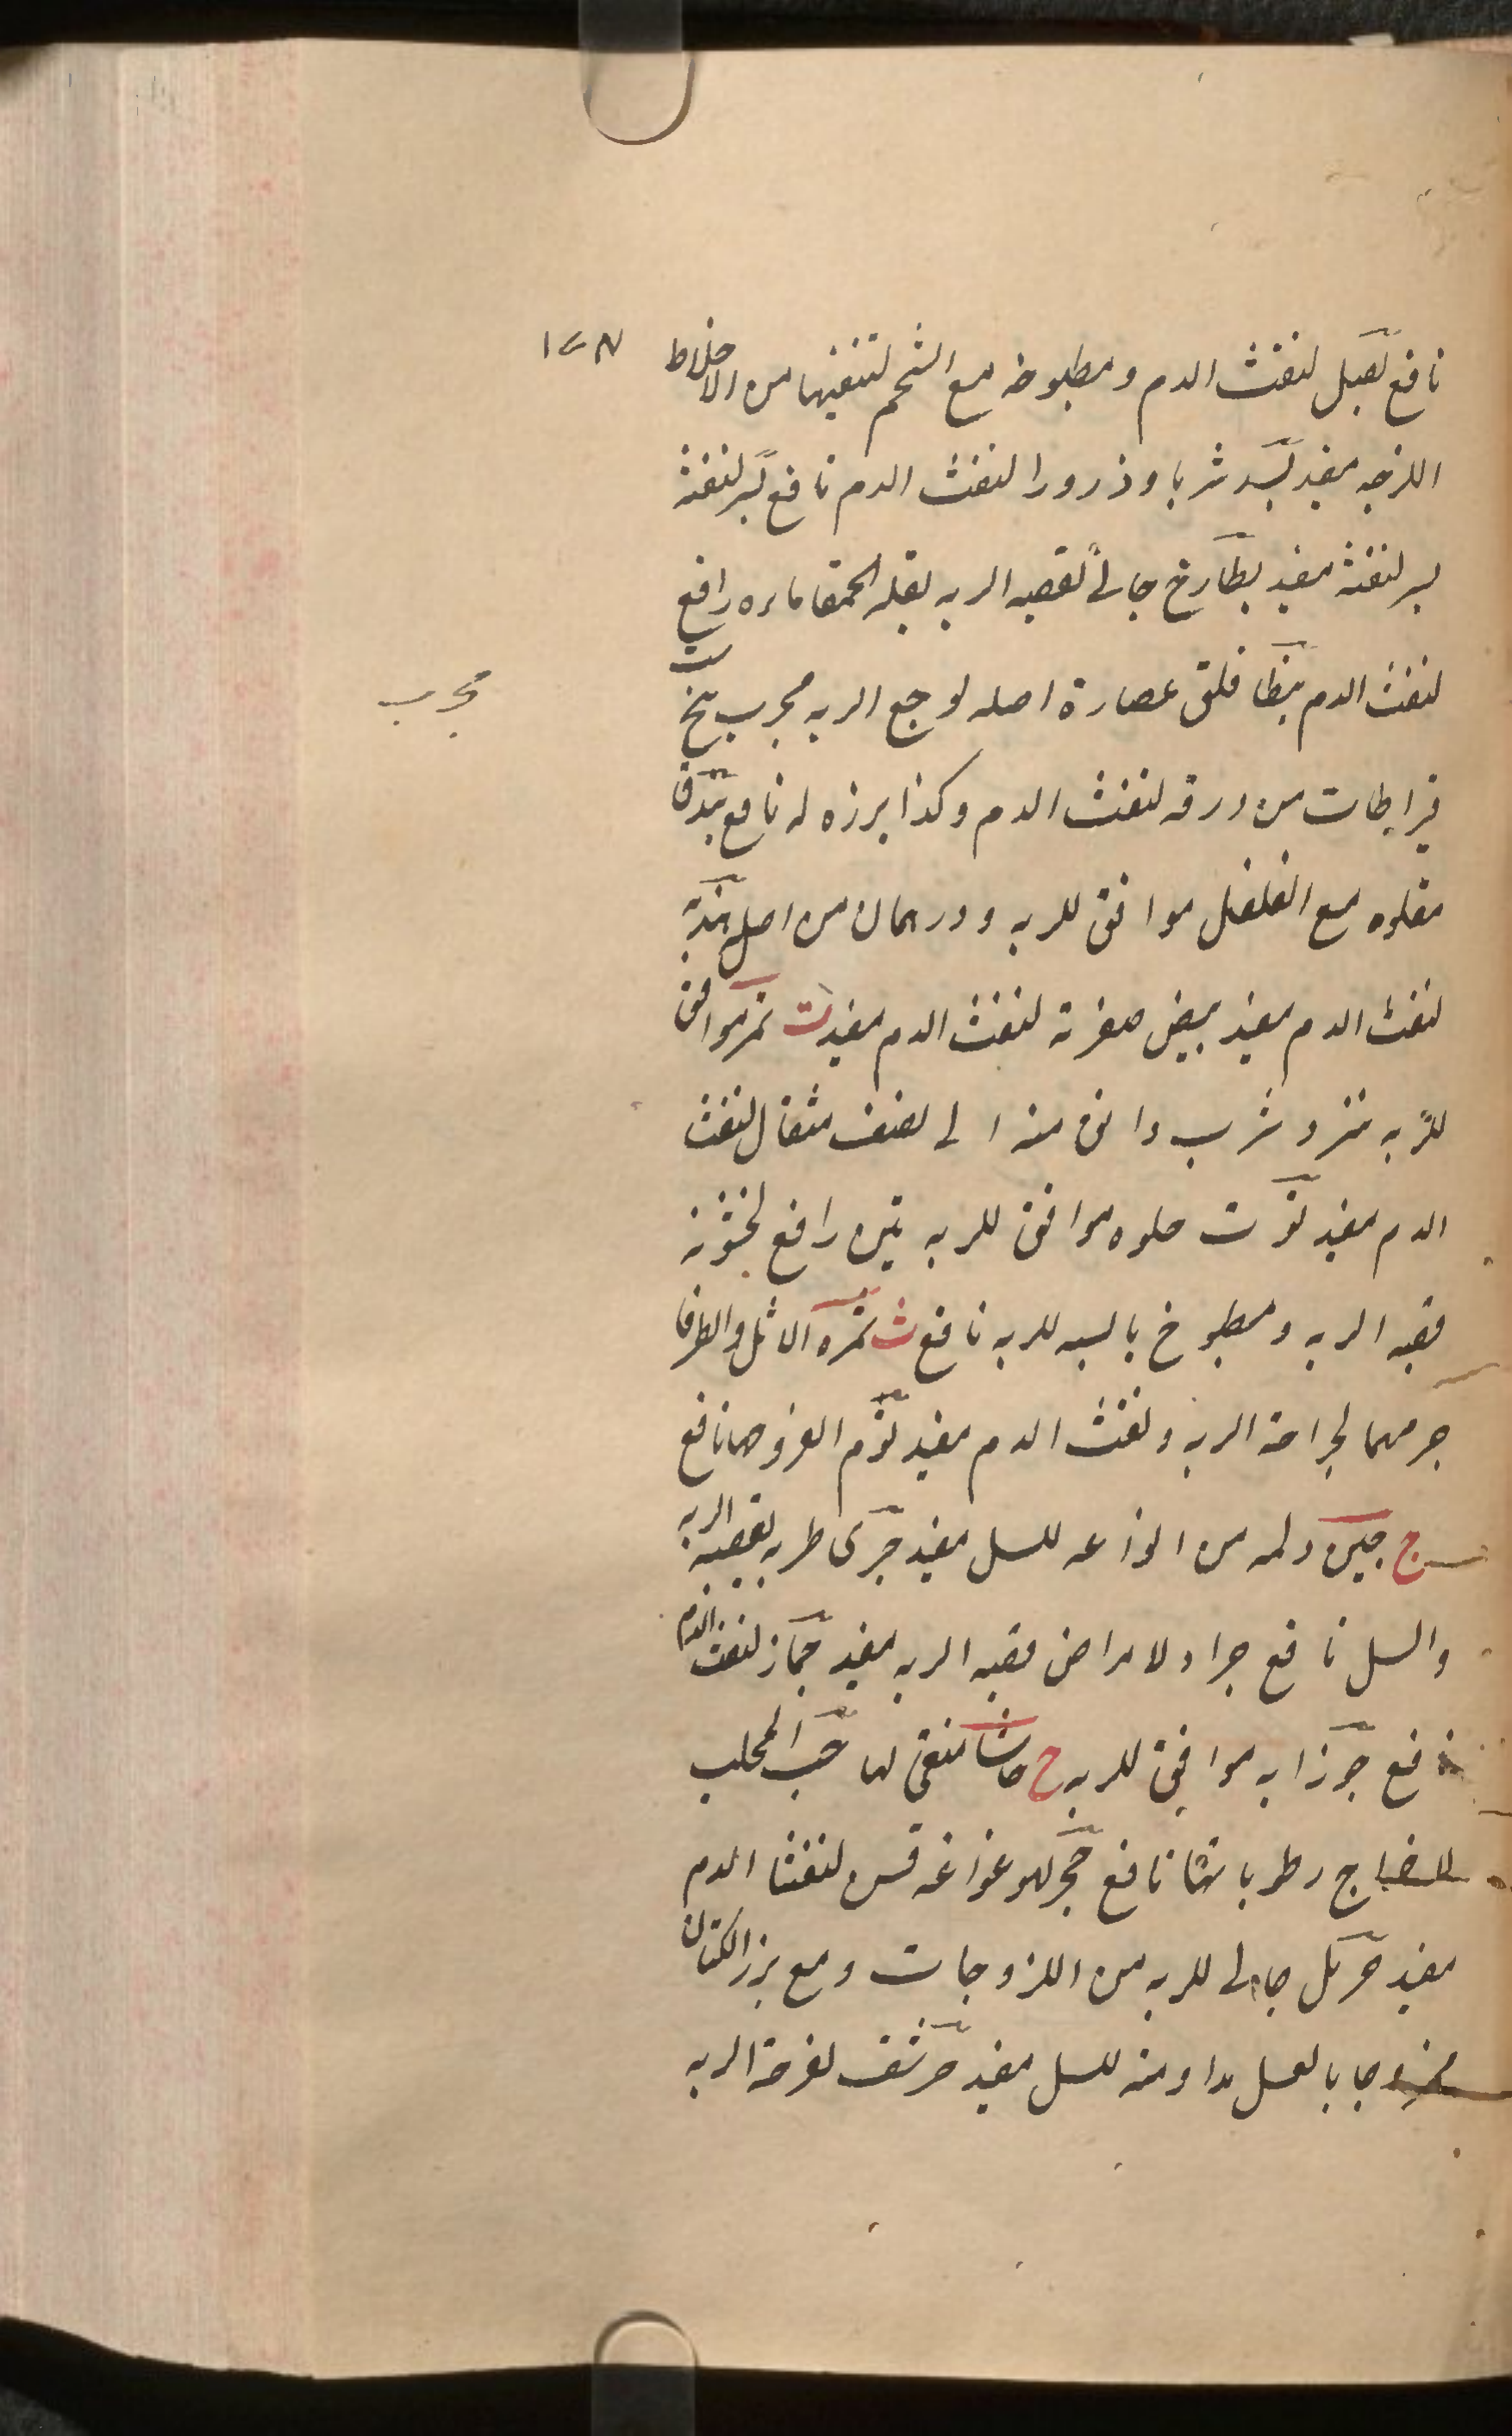 ١٢٨
نافع بصل لنفث الدم ومطبوخه مع الشحم لتنقيتها من الاخلاط
اللزجه مفيد بسد شربا وذرورا لنفث الدم نافع بسر لنفثه
بسر لنفثه مفيد بطارخ جالى لقصبه الريه بقله الحمقا ماءه رافع
لنفث الدم بنطافلن عصارة اصله لوجع الريه مجرب بنج ست
مجرب
قيراطات من ورقه لنفث الدم وكذا بزره له نافع بندق
مقلوه مع الفلفل موافق للريه ودرهمان من اصل
لنفث الدم مفيد بيض صفرته لنفث الدم مفيد ت تمر موافق
للريه شرب دانق منه الى نصف مثقال لنفث
الدم مفيد توت حلوه موافق للريه تين رافع لخشونة
قصبه الريه ومطبوخ يابسه للريه نافع ث ثمره الاثل والطرفا
جرمهما لجراحة الريه ونفث الدم مفيد ثوم نافع
ج جبن ولمه من للسل مفيد جرى طريه لقصبه الريه
والسل نافع جراد لامراض قصبه الريه مفيد جماز لنفث الدم
نافع جوزابه موافق للريه ح حاشا منقى لها حب المحلب
رطوباتها نافع حجر لنفث الدم
مفيد حرمل جالى للريه من اللزوجات ومع بزر الكتان
ممزوجا بالعسل مداومته للسل مفيد حرشف لقرحة الريه